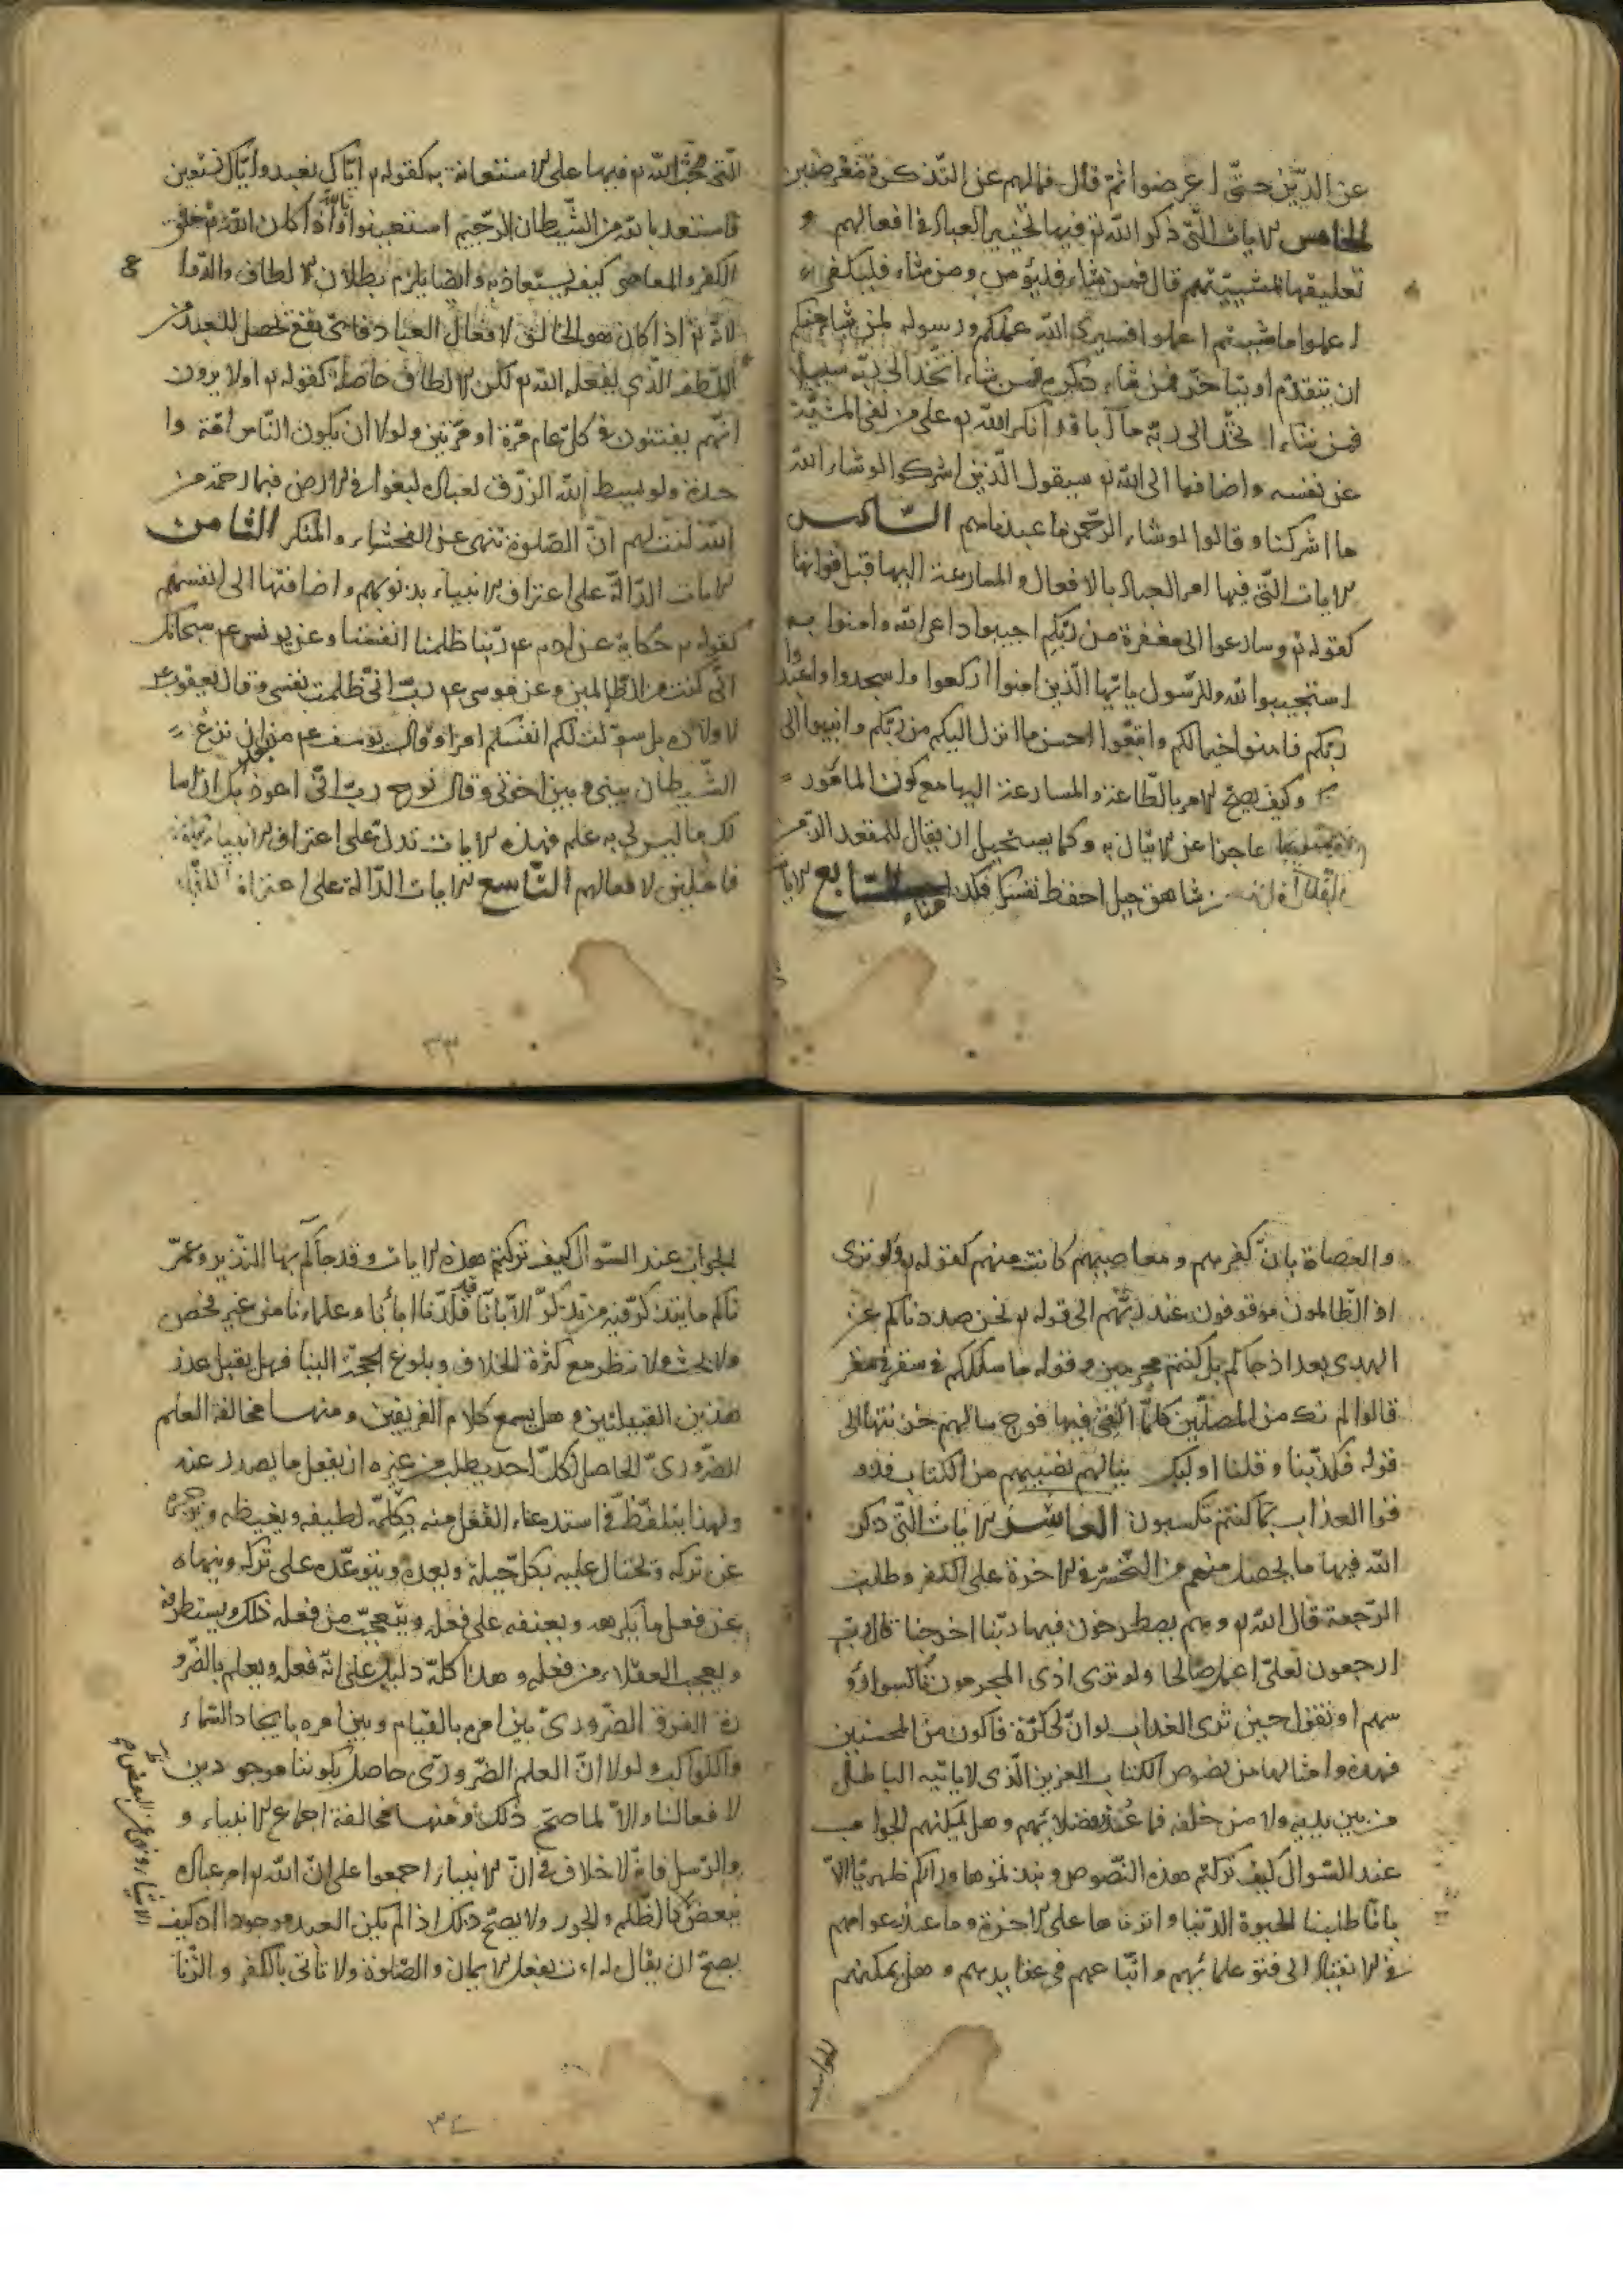 عن الدين حتى اعرضوا ثم قال فمالهم عن التذكرة معرضين
الخامس الايات التي ذكر الله تع فيها تخيير العباد في افعالهم و
تعليقها بمشيتهم قال فمن شاء فليؤمن ومن شاء فليكفر
اعملوا ما شئتم اعملوا فسيرى الله عملكم ورسوله لمن شاء منكم
ان يتقدم او يتاخر فمن شاء ذكره فمن شاء اتخذ الى ربه سبيلا
فمن شاء اتخذ الى ربه مآبا قد انكر الله تع على من نفى المشية
عن نفسه واضافها الى الله تع سيقول الذين اشركوا لو شاء الله
ما اشركنا وقالوا لو شاء الرحمن ما عبدناهم السادس
الايات التي فيها امر العباد بالافعال والمسارعة اليها قبل فواتها
كقوله تع وسارعوا الى مغفرة من ربكم اجيبوا داعي الله وامنوا به
استجيبوا لله وللرسول ياايها الذين امنوا اركعوا واسجدوا واعبدوا
ربكم فامنوا خيرا لكم واتبعوا احسن ما انزل اليكم من ربكم وانيبوا الى
وكيف يصح الامر بالطاعة والمسارعة اليها مع كون المامور
عاجزا عن الاتيان به وكما يستحيل ان يقال للمقعد الزمن
شاهق جبل احفظ نفسك فكذا هنا السابع الايات
التي حث الله تع فيها على الاستعانة به كقوله تع اياك نعبد واياك نستعين
فاستعذ بالله من الشيطان الرجيم استعينوا بالله فاذا كان الله تع خلق
الكفر والمعاصي كيف يستعاذ به وايضا يلزم بطلان الالطاف والدعا
لانه تع اذا كان هو الخالق لافعال العباد فاي نفع تحصل للعبد من
اللطف الذي يفعله الله تع لكن الالطاف حاصلة كقوله تع اولا يرون
انهم يفتنون في كل عام مرة او مرتين ولولا ان يكون الناس امة وا
حدة ولو بسط الله الرزق لعباده لبغوا في الارض فبما رحمة من
الله لنت لهم ان الصلوة تنهى عن الفحشاء والمنكر الثامن
الايات الدالة على اعتراف الانبياء بذنوبهم واضافتها الى انفسهم
كقوله تع حكاية عن ادم ع م ربنا ظلمنا انفسنا وعن يونس ع م سبحانك
اني كنت من الظالمين وعن موسى ع م رب اني ظلمت نفسي وقال يعقوب ع م
لاولاده بل سولت لكم انفسكم امرا وقال يوسف ع م من بعد ان نزغ
الشيطان بيني وبين اخوتي وقال نوح رب اني اعوذ بك ان اسا
لك ما ليس لي به علم فهذه الايات تدل على اعتراف الانبياء بكونهم
فاعلين لافعالهم التاسع الايات الدالة على اعتراف الكفار
٣٣
والعصاة بان كفرهم ومعاصيهم كانت منهم كقوله تع ولو ترى
اذ الظالمون موقوفون عند ربهم الى قوله تع نحن صددناكم عن
الهدى بعد اذ جاءكم بل كنتم مجرمين وقوله ما سلككم في سقر
قالوا لم نك من المصلين كلما القي فيها فوج سالهم خزنتها الى
قوله فكذبنا وقلنا اولئك ينالهم نصيبهم من الكتاب فذو
قوا العذاب بما كنتم تكسبون العاشر الايات التي ذكر
الله فيها ما يحصل منهم من التحسر في الاخرة على الكفر وطلب
الرجعة قال الله تع وهم يصطرخون فيها ربنا اخرجنا قال رب
ارجعون لعلي اعمل صالحا ولو ترى اذ المجرمون ناكسوا رؤ
سهم او تقول حين ترى العذاب لو ان لي كرة فاكون من المحسنين
فهذه وامثالها من نصوص الكتاب العزيز الذي لا ياتيه الباطل
من بين يديه ولا من خلفه فما عذر فضلائهم وهل يمكنهم الجواب
عند السؤال كيف تركتم هذه النصوص ونبذتموها وراءكم ظهريا الا
بانا طلبنا الحيوة الدنيا واثرناها على الاخرة وما عذر عوامهم
في الانقياد الى فتوى علمائهم واتباعهم في عقايدهم وهل يمكنهم
الجواب
الجواب عند السؤال كيف تركتم هذه الايات وقد جاءكم بها النذير وعمر
ناكم ما يتذكر فيه من تذكر الا بانا قد قلدنا اباءنا وعلماءنا من غير فحص
ولا بحث ولا نظر مع كثرة الخلاف وبلوغ الحجة الينا فهل يقبل عذر
هذين القبيلتين وهل يسمع كلام الفريقين ومنها مخالفة العلم
الضروري الحاصل لكل احد يطلب من غيره ان يفعل ما يصدر عنه
ولهذا يتلفظ في استدعاء الفعل منه بكلمة لطيفة ويغيظه ويزجره
عن تركه ويحتال عليه بكل حيلة ويعده ويتوعده على تركه وينهاه
عن فعل ما يكرهه ويعنفه على فعله ويتعجب من فعله ذلك ويستطرفه
ويعجب العقلاء من فعله وهذا كله دليل على انه فعله ويعلم بالضرو
رة الفرق الضروري بين امره بالقيام وبين امره بايجاد السماء
والكواكب ولولا ان العلم الضروري حاصل بكوننا موجودين
لافعالنا والا لما صح ذلك ومنها مخالفة اجماع الانبياء و
والرسل فانه لا خلاف في ان الانبياء اجمعوا على ان الله تع امر عباده
ببعض كالظلم والجور ولا يصح ذلك اذا لم يكن العبد موجودا اذ كيف
يصح ان يقال له ائت بفعل الايمان والصلوة ولا تاتي بالكفر والزنا
٣٤